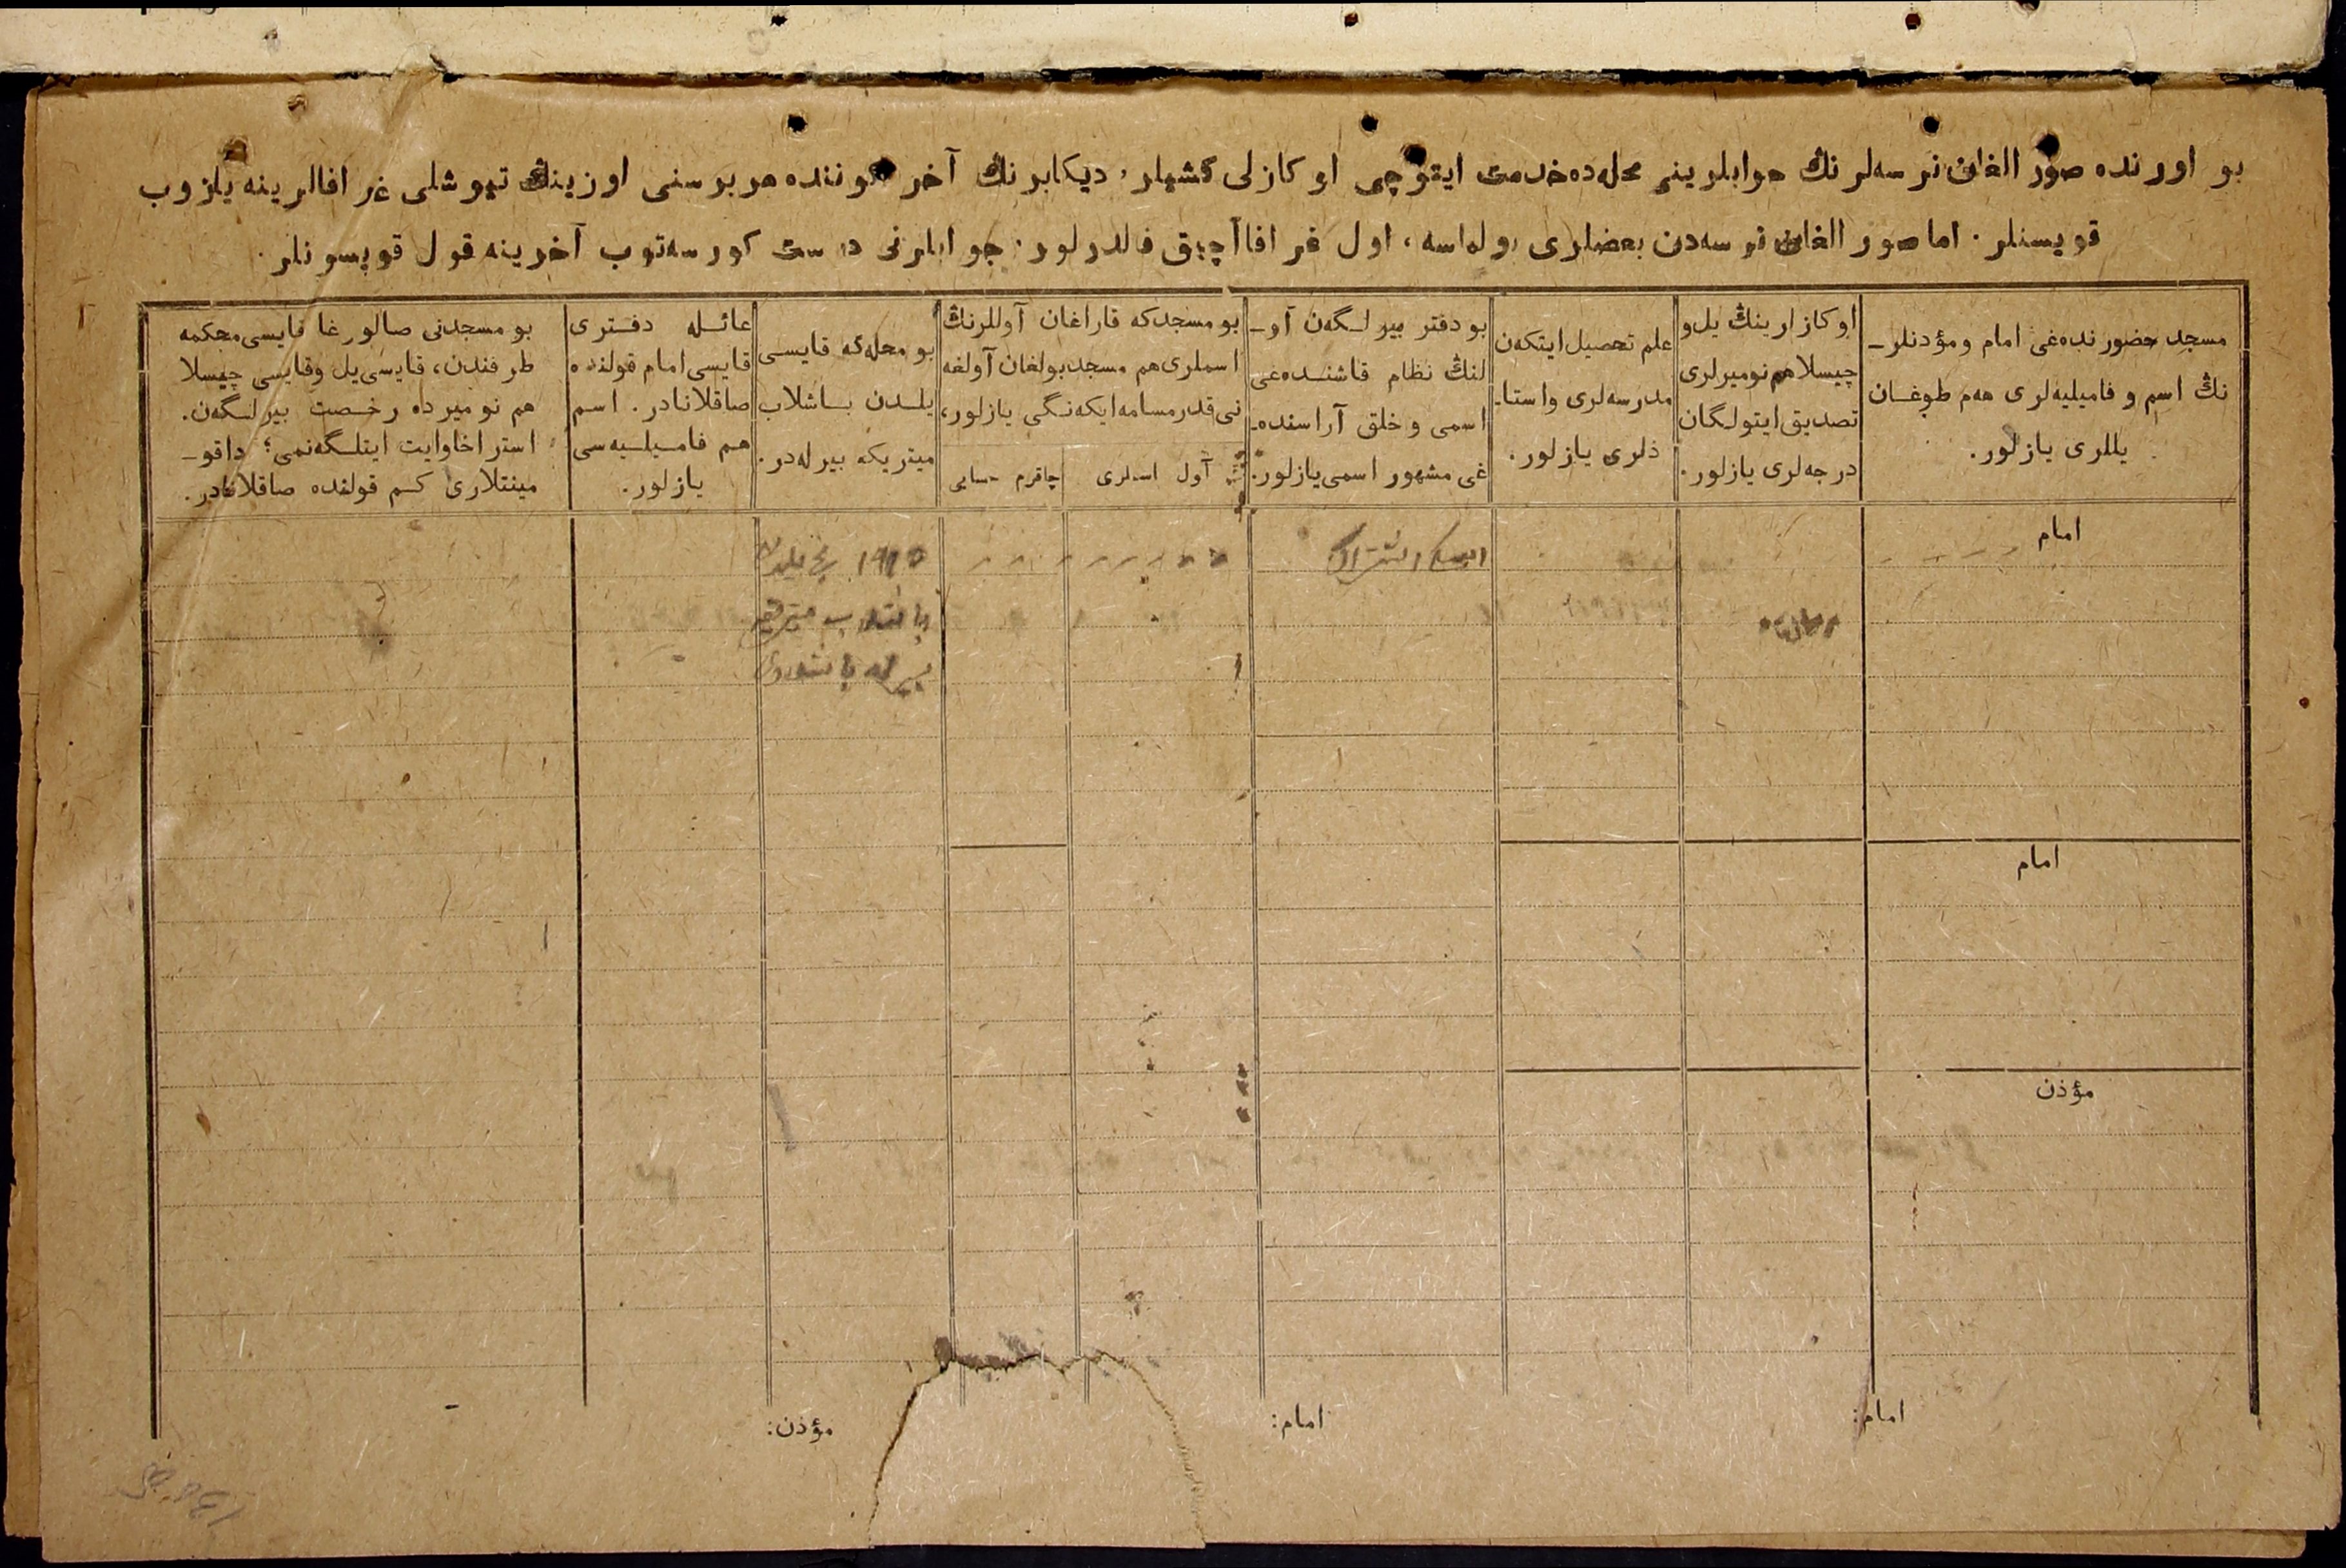 بو اورنده صورالغان نرسه‌لرنڭ جوابلرینی محله‌ده خدمت ایتوچی اوکازلی کشیلر، دیکابرنڭ آخر کوننده هر برسنی اوزینڭ تیوشلی غرافالرینه یازوب
قویسنلر. اما صورالغان نرسه‌دن بعضلری بولماسه، اول غرافا آچیق قالدرلور. جوابلرنی درست کورسه‌توب آخرینه قول قویسونلر.
مسجد حضورنده‌غی امام ومؤذنلر-
نڭ اسم و فامیلیه‌لری هم طوغان
یللری یازلور.
اوکازلرینڭ یل و
چیسلا هم نومیرلری
تصدیق ایتولگان
درجه‌لری یازلور.
علم تحصیل ایتکەن
مدرسه‌لری واستا-
ذلری یازلور.
بو دفتر بیرلگەن آو-
لنڭ نظام قاشنده‌غی
اسمی و خلق آراسنده-
غی مشهور اسمی یازلور.
بو مسجدکه قاراغان آوللرنڭ
اسملری هم مسجد بولغان آولغه
نی قدر مسافه ایکەنگی یازلور،
آول اسملری
چاقرم حسابی
بو محله‌گه قایسی
یلدن باشلاب
میتریکه بیرله‌در.
عائله دفتری
قایسی امام قولنده
صاقلانادر. اسم
هم فامیلیه‌سی
یازلور.
بو مسجدنی صالورغا قایسی محکمه
طرفندن، قایسی یل وقایسی چیسلا
هم نومیرده رخصت بیرلگەن.
استراخاوایت ایتلگەنمی؟ داقو-
مینتلاری کم قولنده صاقلانادر.
امام
1915 نچی یلدن
باشلاب متریکه
بیرله باشلادی
امام
مؤذن
امام:
امام:
مؤذن: